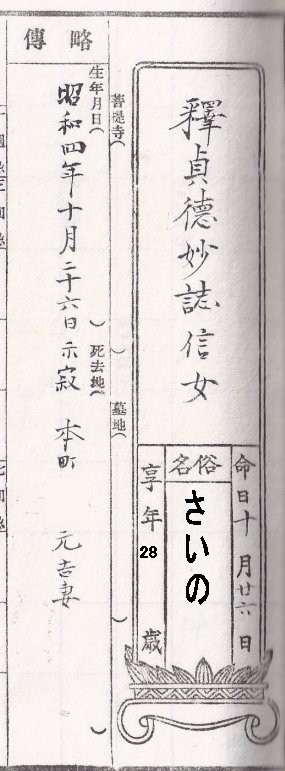 釋貞德妙誌信女
命日十月廿六日
俗名
さいの
享年28歳
菩提寺( )
墓地( )
略傳
生年月日( )
死去地( )
昭和四年十月二十六日示寂 本町 元吉妻